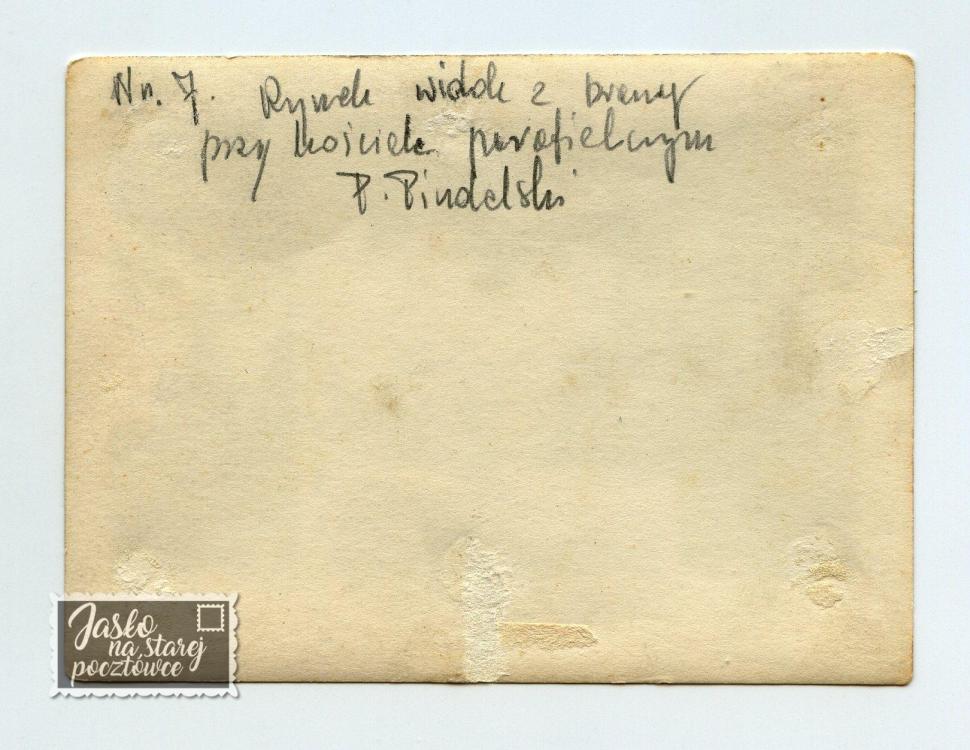 Nr. 7. Rynek widok z bramy
przy kościele parafielnym
P. Pindelski
Jasło
na starej
pocztówce